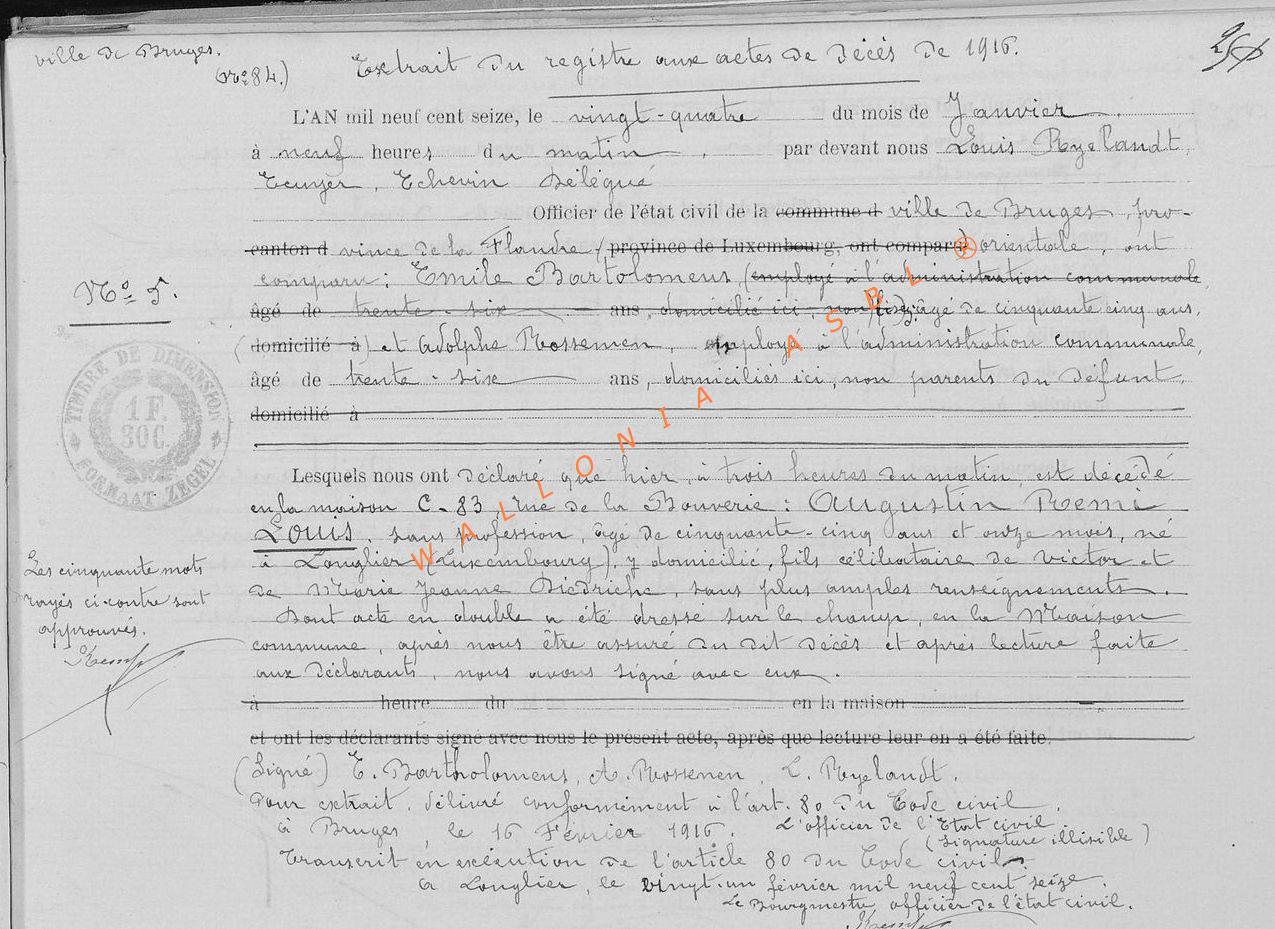 ville de Bruges.
(No 84.)
Extrait du registre aux actes de décès de 1916.
L'AN mil neuf cent seize, le vingt-quatre du mois de Janvier
à neuf heures du matin, par devant nous Louis Ryelandt,
Ecuyer, Echevin délégué
Officier de l'état civil de la commune d ville de Bruges, pro-
canton d vince de la Flandre (province de Luxembourg, ont comparu) orientale, ont
comparu: Emile Bartolomeus, (employé à l'administration communale,
No 5.
âgé de trente-six ans, domicilié ici, non (lisez: âgé de cinquante cinq ans,
(domicilié à) et Adolphe Rossenen, employé à l'administration communale,
âgé de trente-six ans, domiciliés ici, non parents du défunt,
domicilié à
TIMBRE DE DIMENSION
1 F.
30 C.
FORMAAT ZEGEL
Lesquels nous ont déclaré que hier, à trois heures du matin, est décédé
en la maison C-83, rue de la Bouverie: Augustin Remi
Louis, sans profession, âgé de cinquante-cinq ans et onze mois, né
à Longlier (Luxembourg), y domicilié, fils célibataire de Victor et
de Marie Jeanne Diedrichs, sans plus amples renseignements.
Dont acte en double a été dressé sur le champ, en la Maison
commune, après nous être assuré du dit décès et après lecture faite
aux déclarants, nous avons signé avec eux.
Les cinquante mots
rayés ci-contre sont
approuvés.
à heure du en la maison
et ont les déclarants signé avec nous le présent acte, après que lecture leur en a été faite.
(Signé) E. Bartholomeus, A. Rossenen, L. Ryelandt.
Pour extrait, délivré conformément à l'art. 80 du Code civil.
à Bruges, le 16 Février 1916. L'officier de l'Etat civil.
(Signature illisible)
Transcrit en exécution de l'article 80 du Code civil.
à Longlier, le vingt-un février mil neuf cent seize.
Le Bourgmestre, officier de l'état civil.
WALLONIA ASBL ®